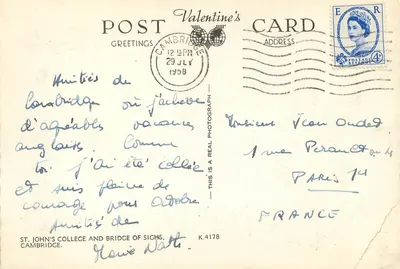 Valentine's
POST CARD
GREETINGS
ADDRESS
CAMBRIDGE
12 15 PM
29 JLY
1958
E R
Amitiés de
Cambridge où j'achève
d'agréables vacances
anglaises. Comme
toi j'ai été collée
et suis pleine de
courage pour
Amitiés de
Monsieur Jean
1 rue
PARIS
FRANCE
THIS IS A REAL PHOTOGRAPH
ST. JOHN'S COLLEGE AND BRIDGE OF SIGHS, K.4178
CAMBRIDGE.